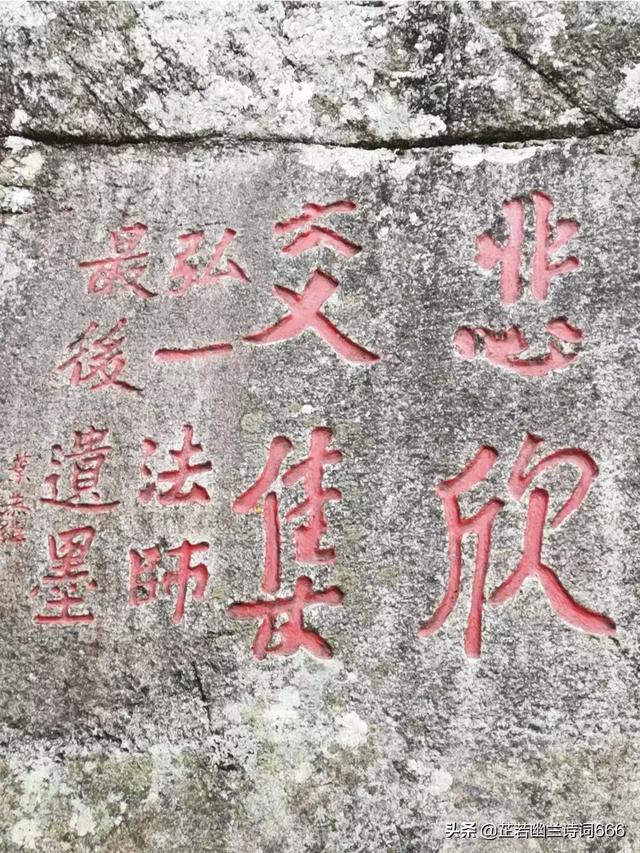 悲欣
交集
弘一法師
最後遺墨
头条 @芷若幽兰诗词666